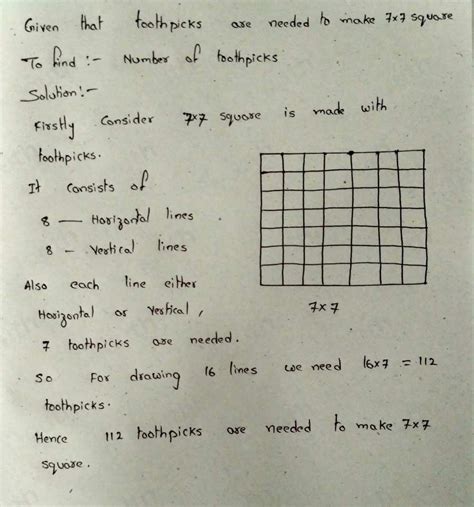 Given that toothpicks are needed to make 7x7 square
To find :- Number of toothpicks
Solution:-
Firstly Consider 7x7 square is made with
toothpicks.
It Consists of
8 — Horizontal lines
8 - Vertical lines
Also each line either
Horizontal or Vertical,
7x7
7 toothpicks are needed.
So For drawing 16 lines we need 16x7 = 112
toothpicks.
Hence 112 toothpicks are needed to make 7x7
square.